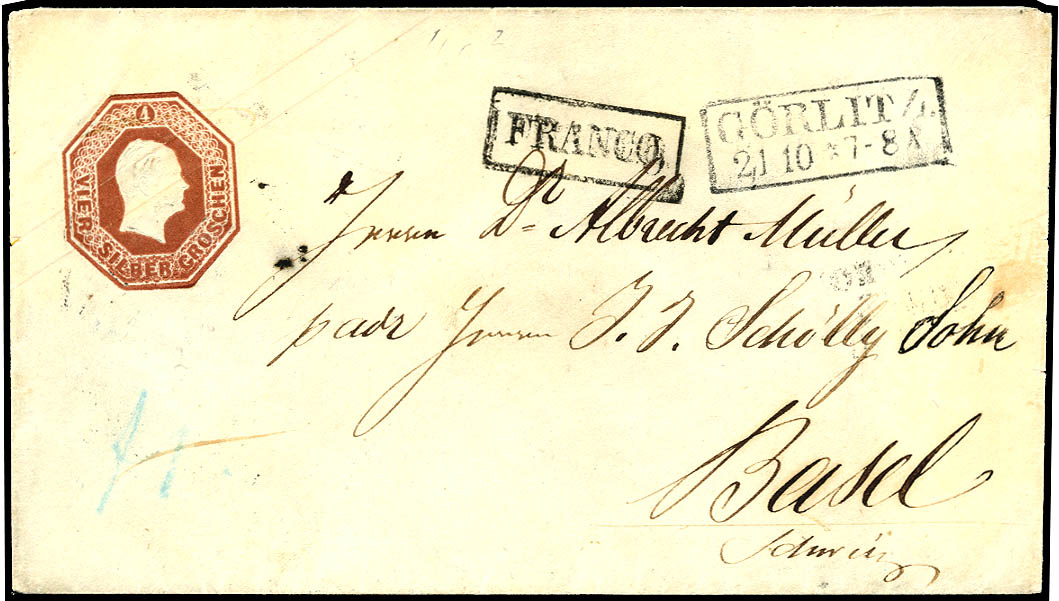 4
VIER SILBER GROSCHEN
FRANCO,
GÖRLITZ
21 10 *7-8
Herrn Dr Albrecht Müller
padr Herrn J. J. Schölly Sohn
Basel
Schweiz